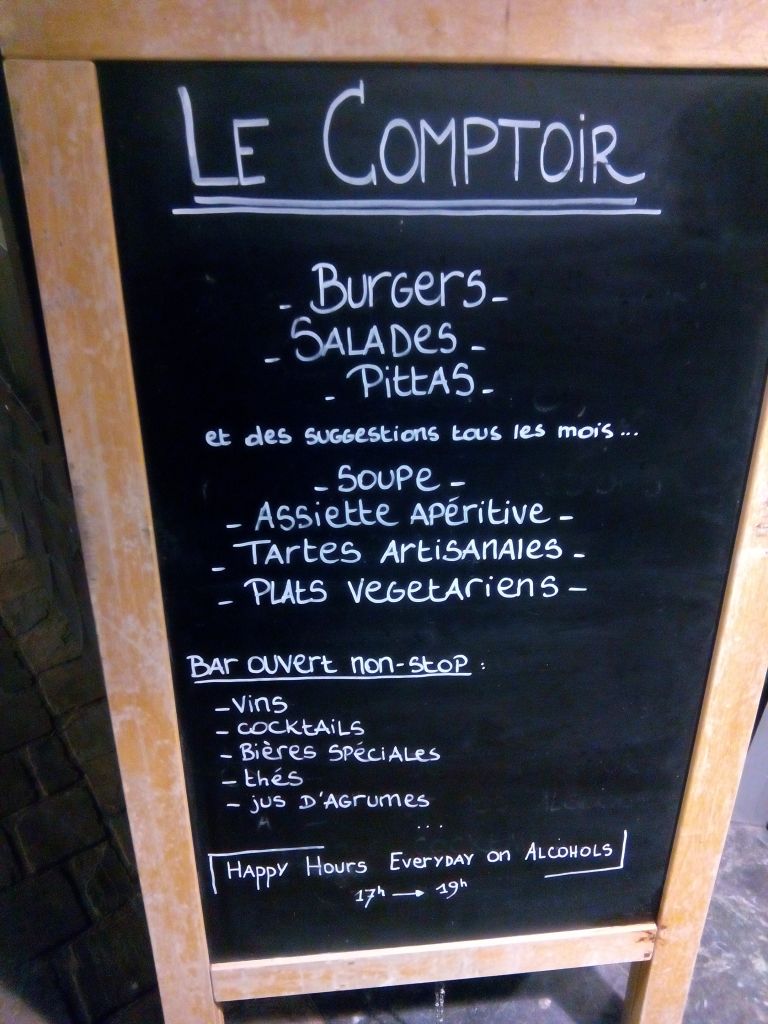 Le Comptoir
- Burgers -
- Salades -
- Pittas -
et des suggestions tous les mois...
- Soupe -
- Assiette Apéritive -
- Tartes Artisanales -
- Plats vegetariens -
Bar ouvert non-stop :
- Vins
- cocktails
- Bières spéciales
- thés
- jus d'agrumes
...
Happy Hours Everyday on Alcohols
17h → 19h